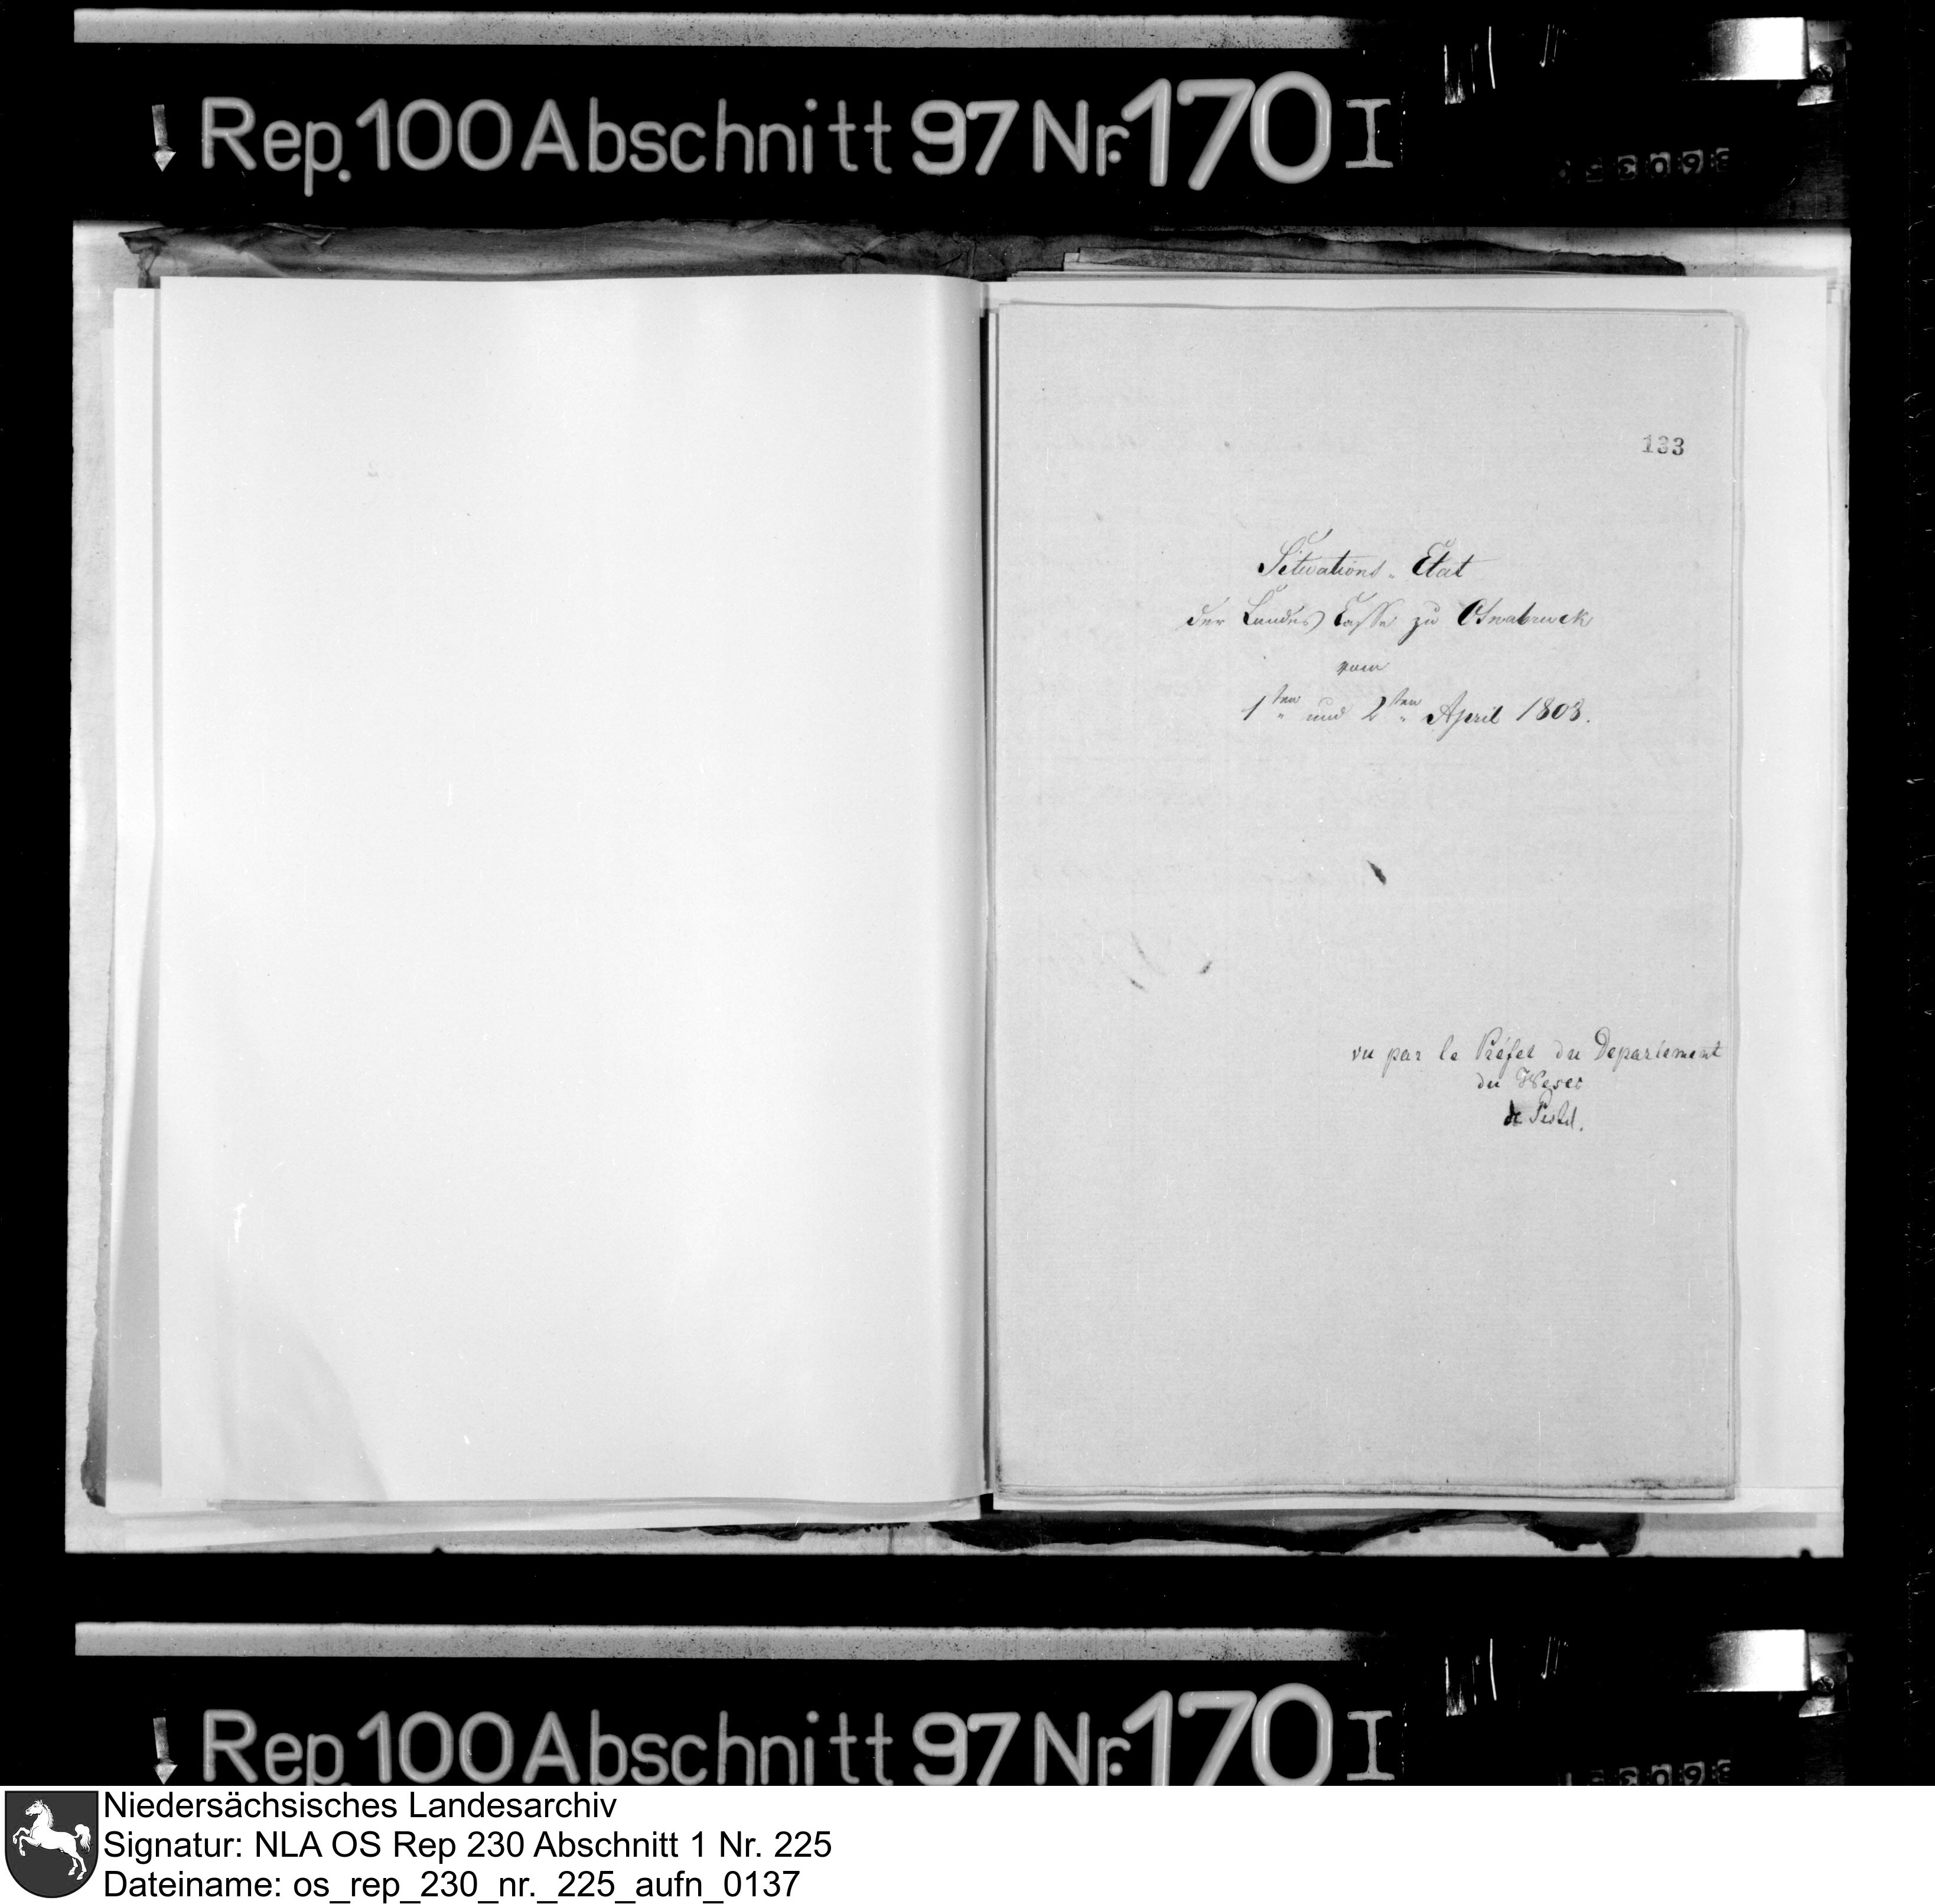 Rep. 100 Abschnitt 97 Nr. 170 I
133
Situations-Etat
der Landes Casse zu Osnabruck
vom
1ten und 2ten April 1808.
vu par le Préfet du Departement
du Weser
de Pestel.
Rep. 100 Abschnitt 97 Nr. 170 I
Niedersächsisches Landesarchiv
Signatur: NLA OS Rep 230 Abschnitt 1 Nr. 225
Dateiname: os_rep_230_nr._225_aufn_0137